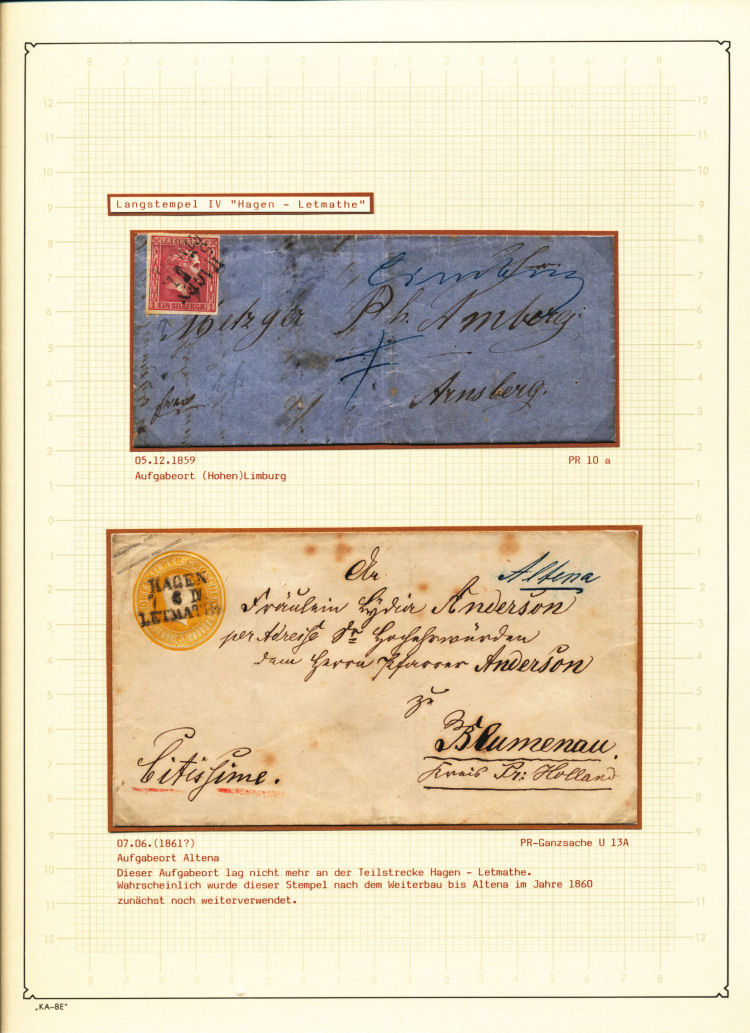 Langstempel IV "Hagen - Letmathe"
EIN SILBERGR.
Metzger Ph. Amberg
Arnsberg.
05.12.1859
PR 10 a
Aufgabeort (Hohen)Limburg
HAGEN
7 6 IV
LETMATHE
An
Altena
Fräulein Lydia Anderson
per Adresse Sr Hochehrwürden
dem Herrn Pfarrer Anderson
zu
Blumenau.
Kreis Pr: Holland
Citissime.
07.06.(1861?)
PR-Ganzsache U 13A
Aufgabeort Altena
Dieser Aufgabeort lag nicht mehr an der Teilstrecke Hagen - Letmathe.
Wahrscheinlich wurde dieser Stempel nach dem Weiterbau bis Altena im Jahre 1860
zunächst noch weiterverwendet.
„KA-BE"